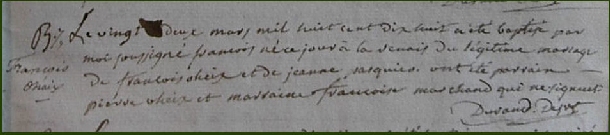 B. Le vingt deux mars mil huit cent dix huit a ete baptise par
moi soussigné francois né ce jour à la venais du légitime mariage
François
oheix
de francois oheix et de jeanne jasquies. ont été parrain
pierre oheix et marraine francoise marchand qui ne signent
Durand